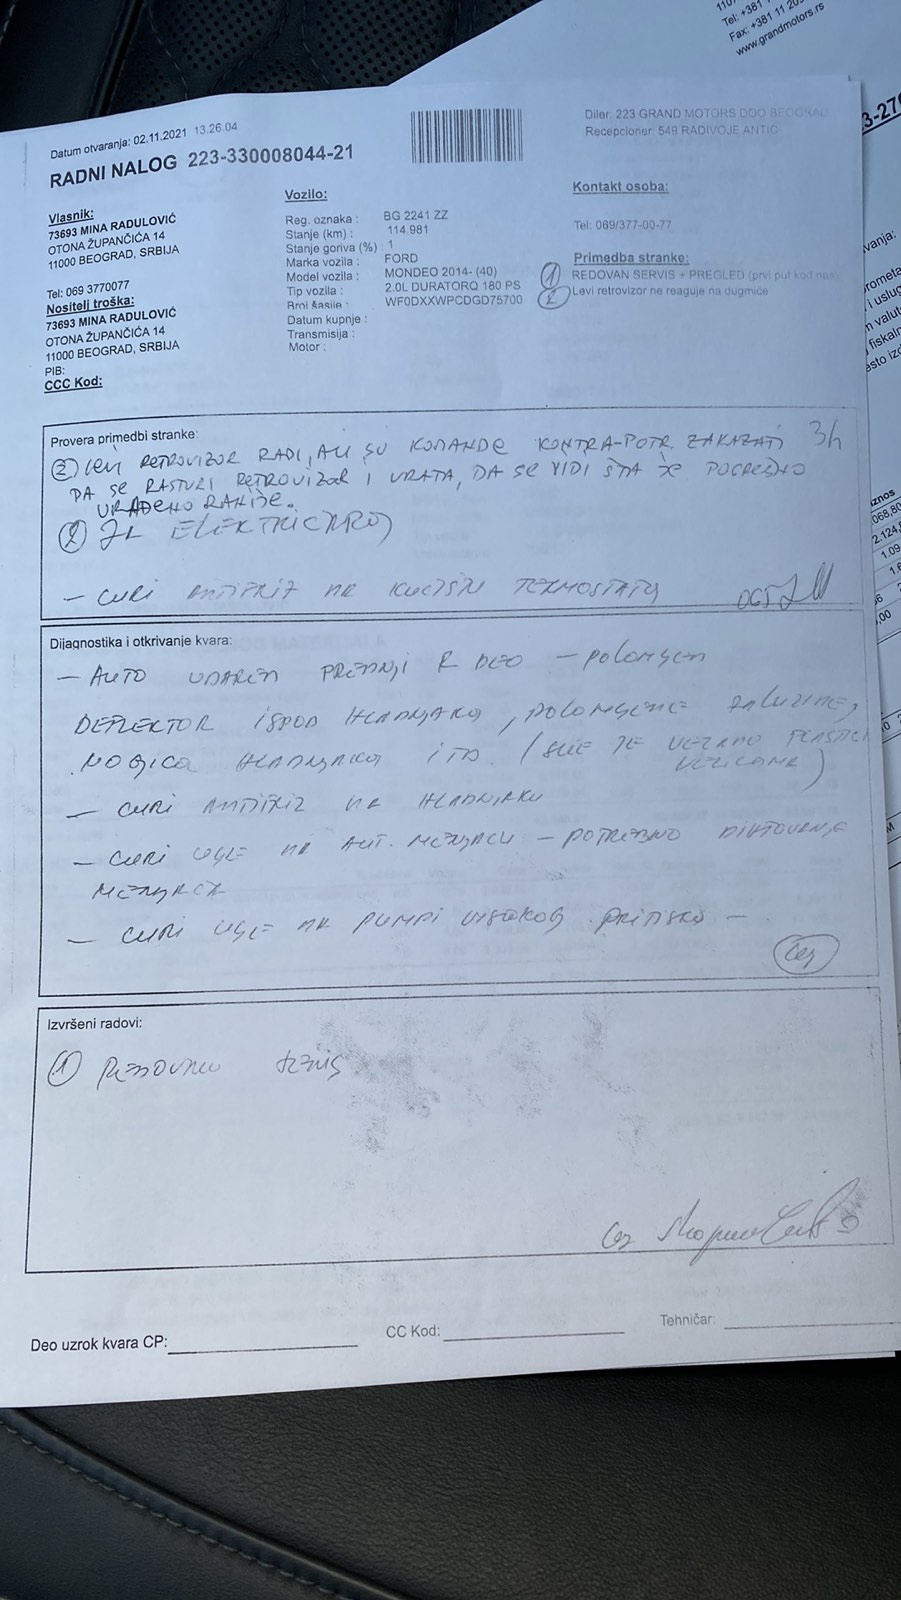 Tel: +381
Fax: +381 11 20
www.grandmotors.rs
Datum otvaranja: 02.11.2021 13.26.04
RADNI NALOG 223-330008044-21
Diler: 223 GRAND MOTORS DOO BEOGRAD
Recepcioner: 549 RADIVOJE ANTIC
Vlasnik:
73693 MINA RADULOVIĆ
OTONA ŽUPANČIĆA 14
11000 BEOGRAD, SRBIJA
Tel: 069 3770077
Nositelj troška:
73693 MINA RADULOVIĆ
OTONA ŽUPANČIĆA 14
11000 BEOGRAD, SRBIJA
PIB:
CCC Kod:
Vozilo:
Reg. oznaka : BG 2241 ZZ
Stanje (km) : 114.981
Stanje goriva (%) : 1
Marka vozila : FORD
Model vozila : MONDEO 2014- (40)
Tip vozila : 2.0L DURATORQ 180 PS
Broj šasije : WF0DXXWPCDGD75700
Datum kupnje :
Transmisija :
Motor :
Kontakt osoba:
Tel: 069/377-00-77
Primedba stranke:
1 REDOVAN SERVIS + PREGLED (prvi put kod nas)
2 Levi retrovizor ne reaguje na dugmiće
Provera primedbi stranke:
2 LEVI RETROVIZOR RADI, ALI SU KOMANDE KONTRA-POTR. ZAKAZATI 3h
DA SE RASTURI RETROVIZOR I VRATA, DA SE VIDI ŠTA JE POGREŠNO
URAĐENO RANIJE.
2 ZA ELEKTRIČARA
- CURI ANTIFRIZ NA KUĆIŠTU TERMOSTATA
Dijagnostika i otkrivanje kvara:
- AUTO UDAREN PREDNJI R DEO - POLOMLJEN
DEFLEKTOR ISPOD HLADNJAKA, POLOMLJENE ŽALUZINE,
NOGICA HLADNJAKA ITD. (SVE JE VEZANO PLASTIČ.
VEZICAMA)
- CURI ANTIFRIZ NA HLADNJAKU
- CURI ULJE NA AUT. MENJAČU - POTREBNO DIHTOVANJE
MENJAČA
- CURI ULJE NA PUMPI VISOKOG PRITISKA -
Izvršeni radovi:
1 REDOVAN SERVIS
Deo uzrok kvara CP:
CC Kod:
Tehničar: